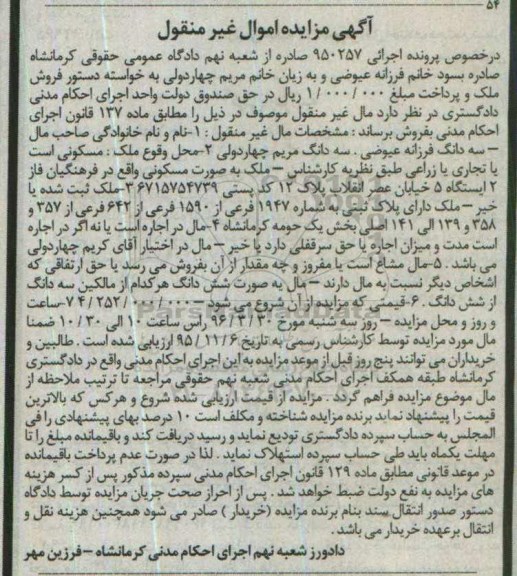 ۵۴
آگهی مزایده اموال غیر منقول
درخصوص پرونده اجرائی ۹۵۰۲۵۷ صادره از شعبه نهم دادگاه عمومی حقوقی کرمانشاه
صادره بسود خانم فرزانه عیوضی و به زیان خانم مریم چهاردولی به خواسته دستور فروش
ملک و پرداخت مبلغ ۱/۰۰۰/۰۰۰ ریال در حق صندوق دولت واحد اجرای احکام مدنی
دادگستری در نظر دارد مال غیر منقول موصوف در ذیل را مطابق ماده ۱۳۷ قانون اجرای
احکام مدنی بفروش برساند : مشخصات مال غیر منقول : ۱-نام و نام خانوادگی صاحب مال
– سه دانگ فرزانه عیوضی . سه دانگ مریم چهاردولی ۲-محل وقوع ملک : مسکونی است
یا تجاری یا زراعی طبق نظریه کارشناس – ملک به صورت مسکونی واقع در فرهنگیان فاز
۲ ایستگاه ۵ خیابان عصر انقلاب پلاک ۱۲ کد پستی ۶۷۱۵۷۵۴۷۳۹ ۳-ملک ثبت شده یا
خیر – ملک دارای پلاک ثبتی به شماره ۱۹۴۷ فرعی از ۱۵۹۰ فرعی از ۶۴۲ فرعی از ۳۵۷ و
۳۵۸ و ۱۳۹ الی ۱۴۱ اصلی بخش یک حومه کرمانشاه ۴-مال در اجاره است یا نه اگر در اجاره
است مدت و میزان اجاره یا حق سرقفلی دارد یا خیر – مال در اختیار آقای کریم چهاردولی
می باشد . ۵-مال مشاع است یا مفروز و چه مقدار از آن بفروش می رسد یا حق ارتفاقی که
اشخاص دیگر نسبت به مال دارند – مال به صورت شش دانگ هرکدام از مالکین سه دانگ
از شش دانگ . ۶-قیمتی که مزایده از آن شروع می شود – ۴/۲۵۲/۰۰۰/۰۰۰ ۷-ساعت
و روز و محل مزایده – روز سه شنبه مورخ ۹۶/۳/۳۰ رأس ساعت ۱۰ الی ۱۰/۳۰ ضمنا
مال مورد مزایده توسط کارشناس رسمی به تاریخ ۹۵/۱۱/۶ ارزیابی شده است . طالبین و
خریداران می توانند پنج روز قبل از موعد مزایده به این اجرای احکام مدنی واقع در دادگستری
کرمانشاه طبقه همکف اجرای احکام مدنی شعبه نهم حقوقی مراجعه تا ترتیب ملاحظه از
مال موضوع مزایده فراهم گردد . مزایده از قیمت ارزیابی شده شروع و هرکس که بالاترین
قیمت را پیشنهاد نماید برنده مزایده شناخته و مکلف است ۱۰ درصد بهای پیشنهادی را فی
المجلس به حساب سپرده دادگستری تودیع نماید و رسید دریافت کند و باقیمانده مبلغ را تا
مهلت یکماه باید طی حساب سپرده استهلاک نماید . لذا در صورت عدم پرداخت باقیمانده
در موعد قانونی مطابق ماده ۱۲۹ قانون اجرای احکام مدنی سپرده مذکور پس از کسر هزینه
های مزایده به نفع دولت ضبط خواهد شد . پس از احراز صحت جریان مزایده توسط دادگاه
دستور صدور انتقال سند بنام برنده مزایده (خریدار) صادر می شود همچنین هزینه نقل و
انتقال برعهده خریدار می باشد .
دادورز شعبه نهم اجرای احکام مدنی کرمانشاه – فرزین مهر